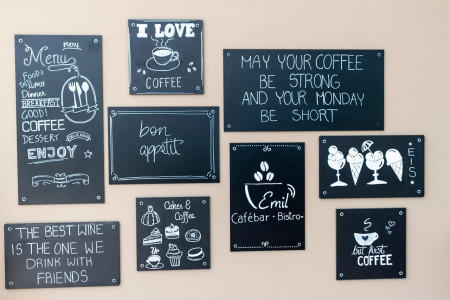 menu
Menu
Food!
LUNCH
Dinner
BREAKFAST
GOOD!
COFFEE
DESSERT
ENJOY
I LOVE
COFFEE
MAY YOUR COFFEE
BE STRONG
AND YOUR MONDAY
BE SHORT
bon
appetit
Emil
Cafébar · Bistro
EIS
THE BEST WINE
IS THE ONE WE
DRINK WITH
FRIENDS
Cakes &
Coffee
but first
COFFEE